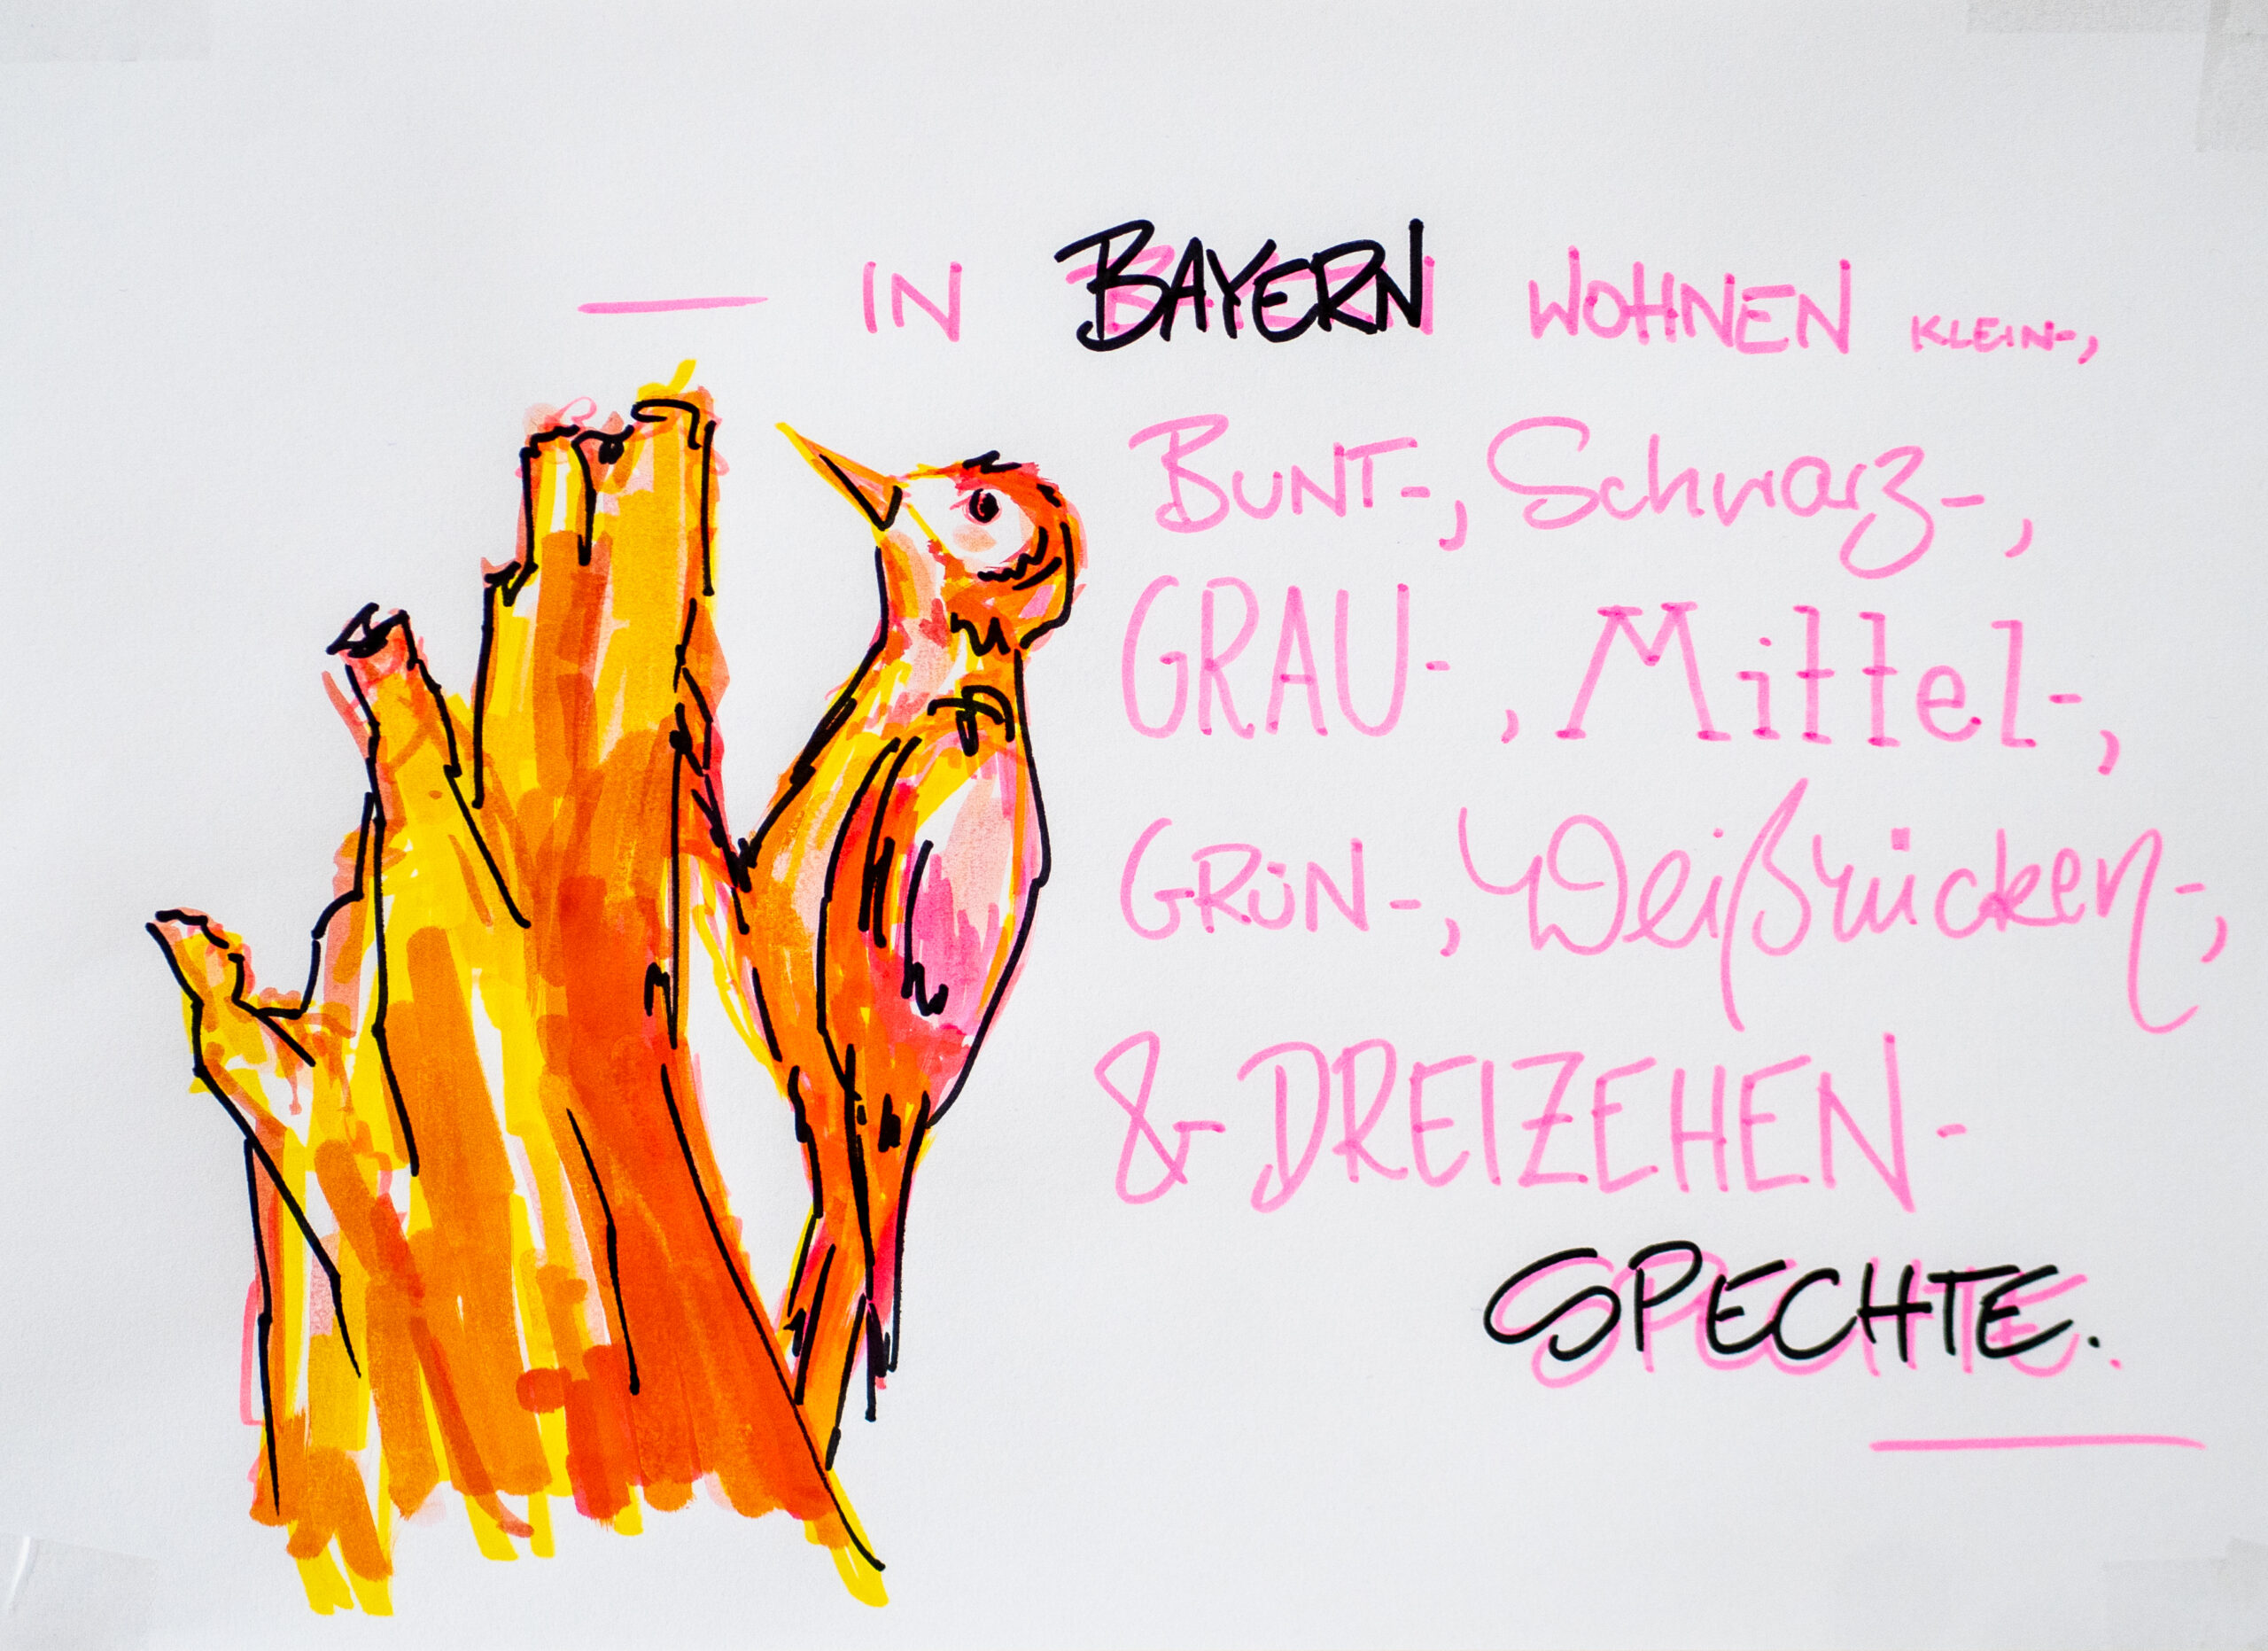 IN BAYERN WOHNEN KLEIN-,
BUNT-, Schwarz-,
GRAU-, Mittel-,
GRÜN-, Weißrücken-,
& DREIZEHEN-
SPECHTE.